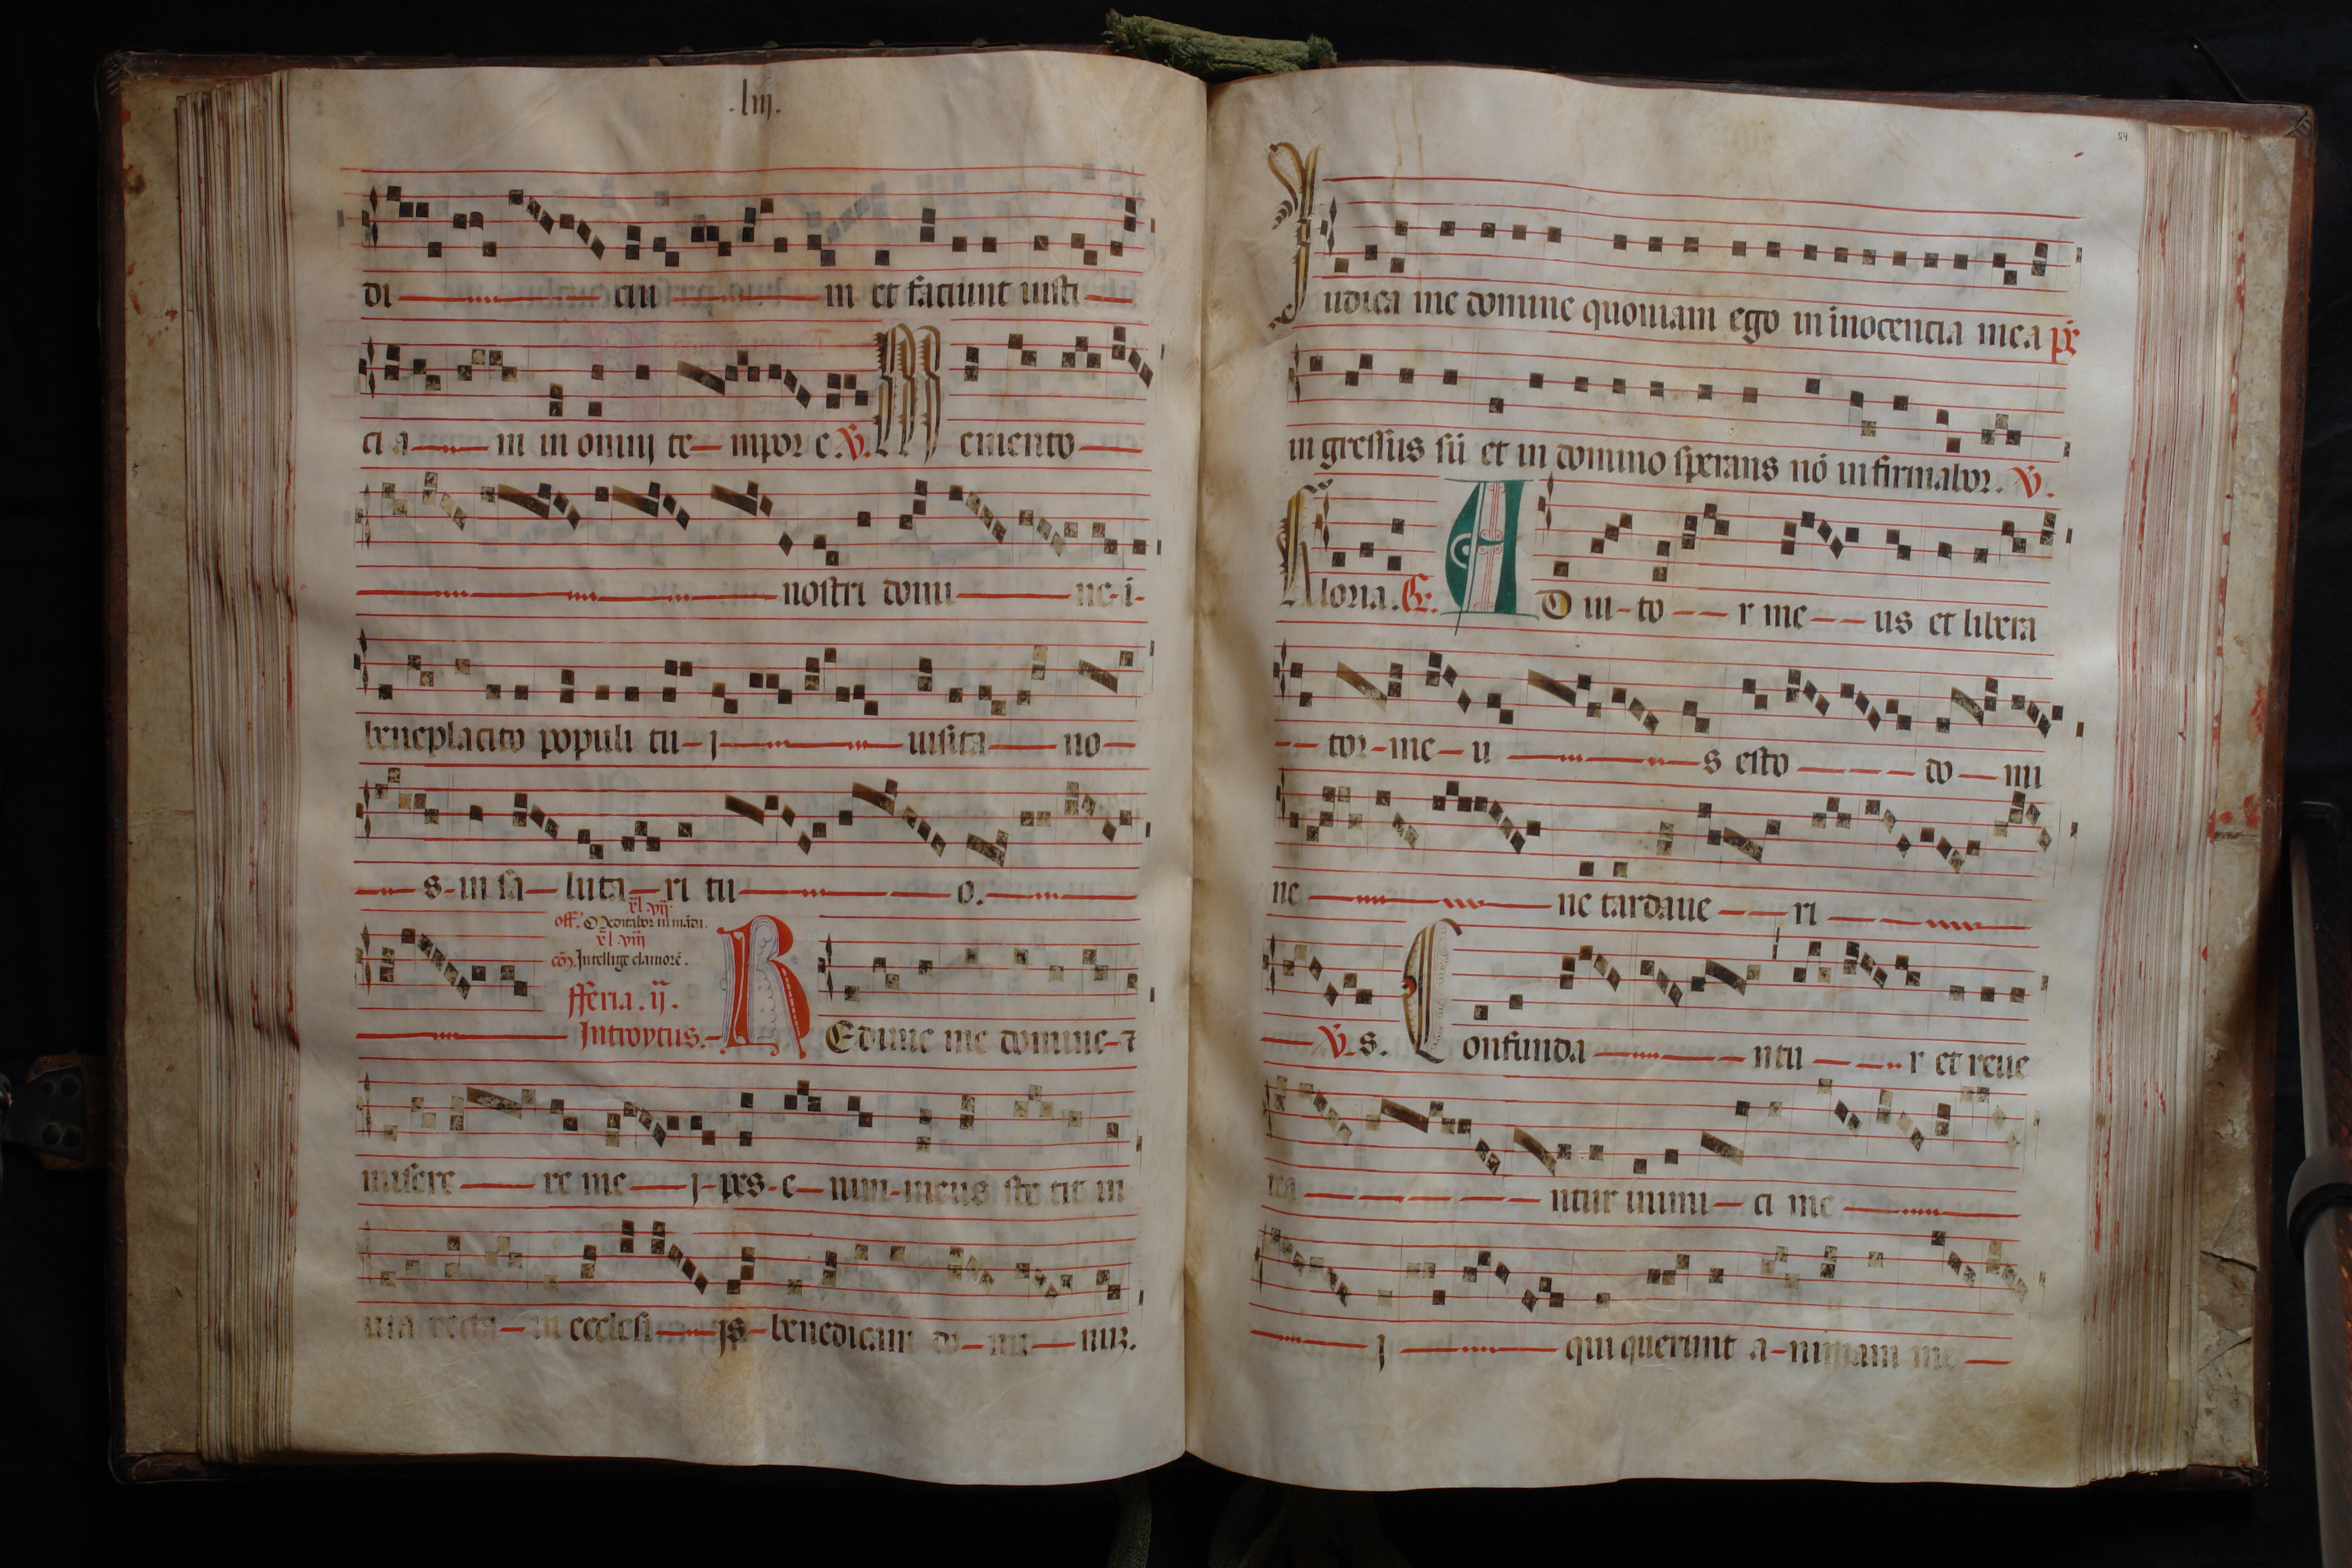 .liij.
di ciu m et faciunt iusti
ci a m in omnj te mpor e. V. M emento
nostri domi ne i
beneplacito populi tu j uisita no
s in sa luta ri tu o.
xl.vij.
off. Meditabor in mādā.
xl.viij
cō. Intellige clamorē.
fferia. ij.
Introytus. R Edime me domine ⁊
misere re me j pes e nim meus ste tit in
uia recta in ecclesi js benedicam do mi nuꝫ.
54
J udica me domine quoniam ego in inocencia mea
in gressus sū et in domino sperans nō infirmabor. V.
G loria. A D iu to r me us et libera
tor me u s esto do mi
ne ne tardaue ri
V. s. C onfunda ntu r et reue
rea ntur inimi ci me
j qui querunt a nimam me